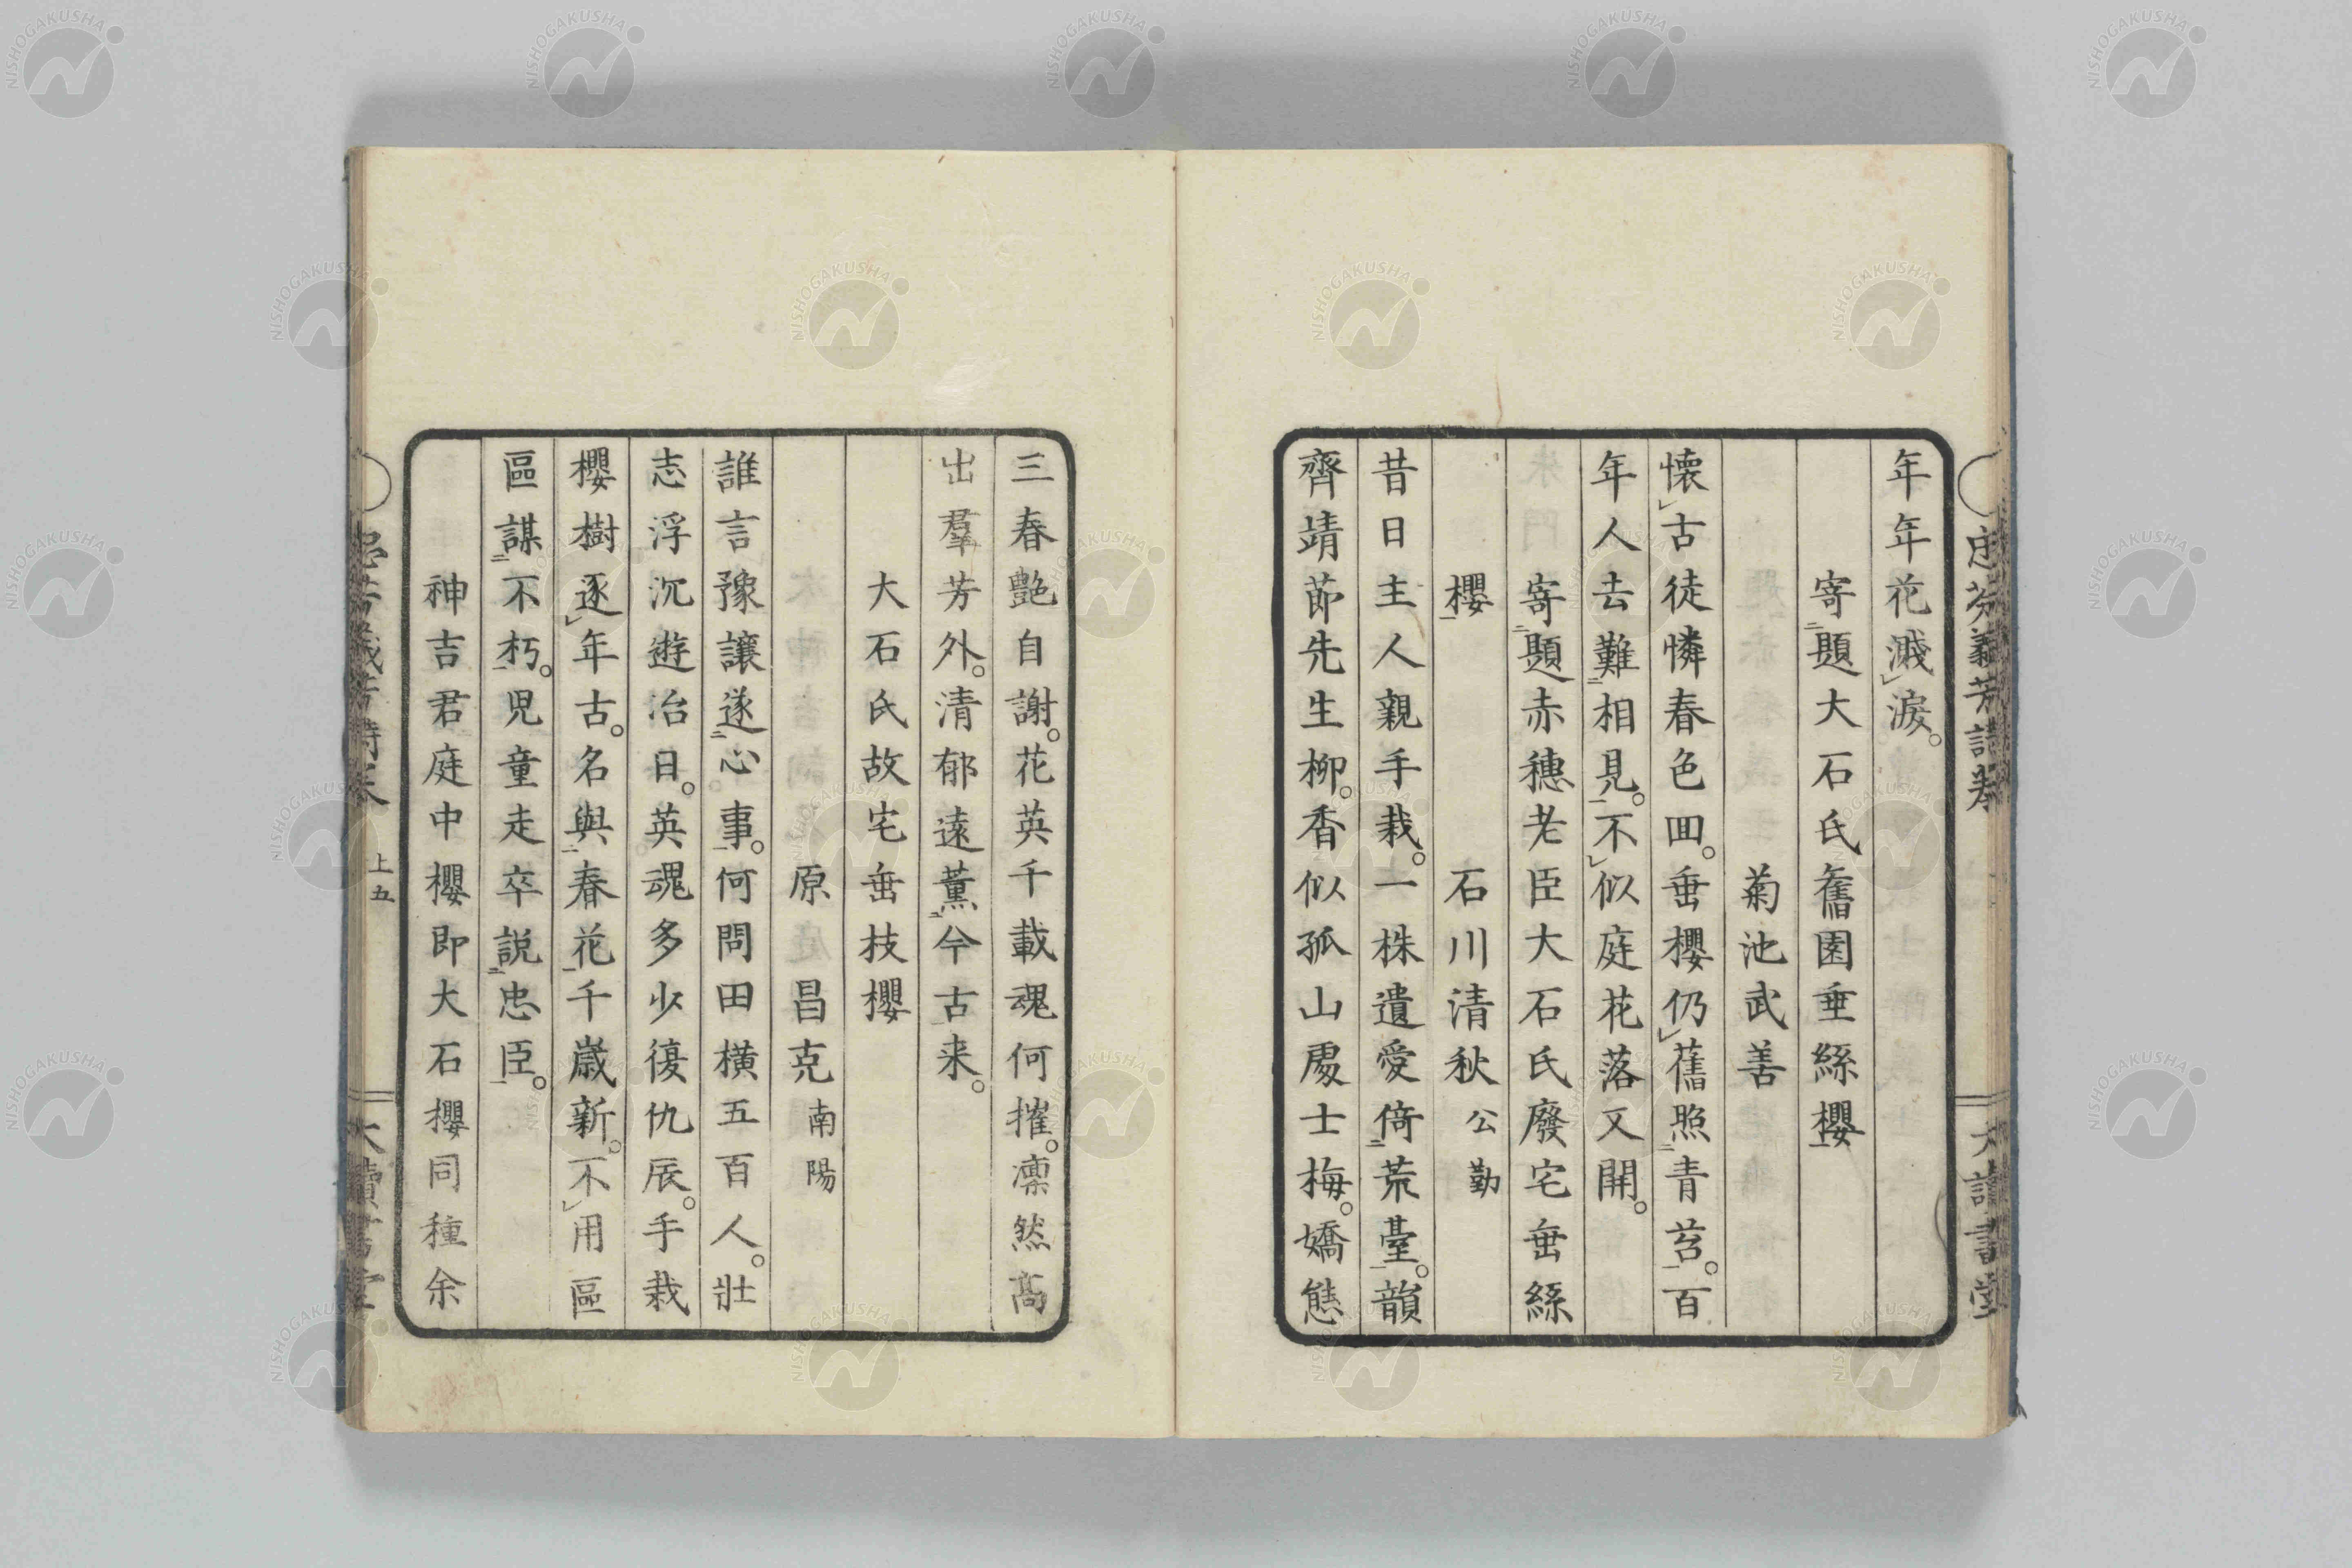 年年花濺淚。
寄題大石氏舊園垂絲櫻
菊池武善
懷古徒憐春色回。垂櫻仍舊照青苔。百
年人去難相見。不似庭花落又開。
寄題赤穗老臣大石氏廢宅垂絲
櫻
石川清秋 公勤
昔日主人親手栽。一株遺愛倚荒臺。韻
齊靖節先生柳。香似孤山處士梅。嬌態
三春艷自謝。花英千載魂何摧。凛然高
出羣芳外。清郁遠薰今古来。
大石氏故宅垂枝櫻
原昌克 南陽
誰言豫讓遂心事。何問田橫五百人。壯
志浮沉遊冶日。英魂多少復仇辰。手栽
櫻樹逐年古。名與春花千歳新。不用區
區謀不朽。児童走卒説忠臣。
神吉君庭中櫻即大石櫻同種余
上五
NISHOGAKUSHA